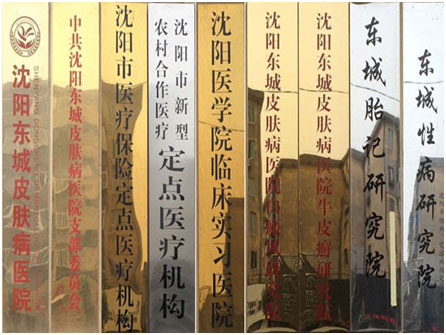 沈阳东城皮肤病医院
中共沈阳东城皮肤病医院支部委员会
沈阳市医疗保险定点医疗机构
沈阳市新型
农村合作医疗
定点医疗机构
沈阳医学院临床实习医院
沈阳东城皮肤病医院白癜风研究院
沈阳东城皮肤病医院牛皮癣研究院
东城胎记研究院
东城性病研究院